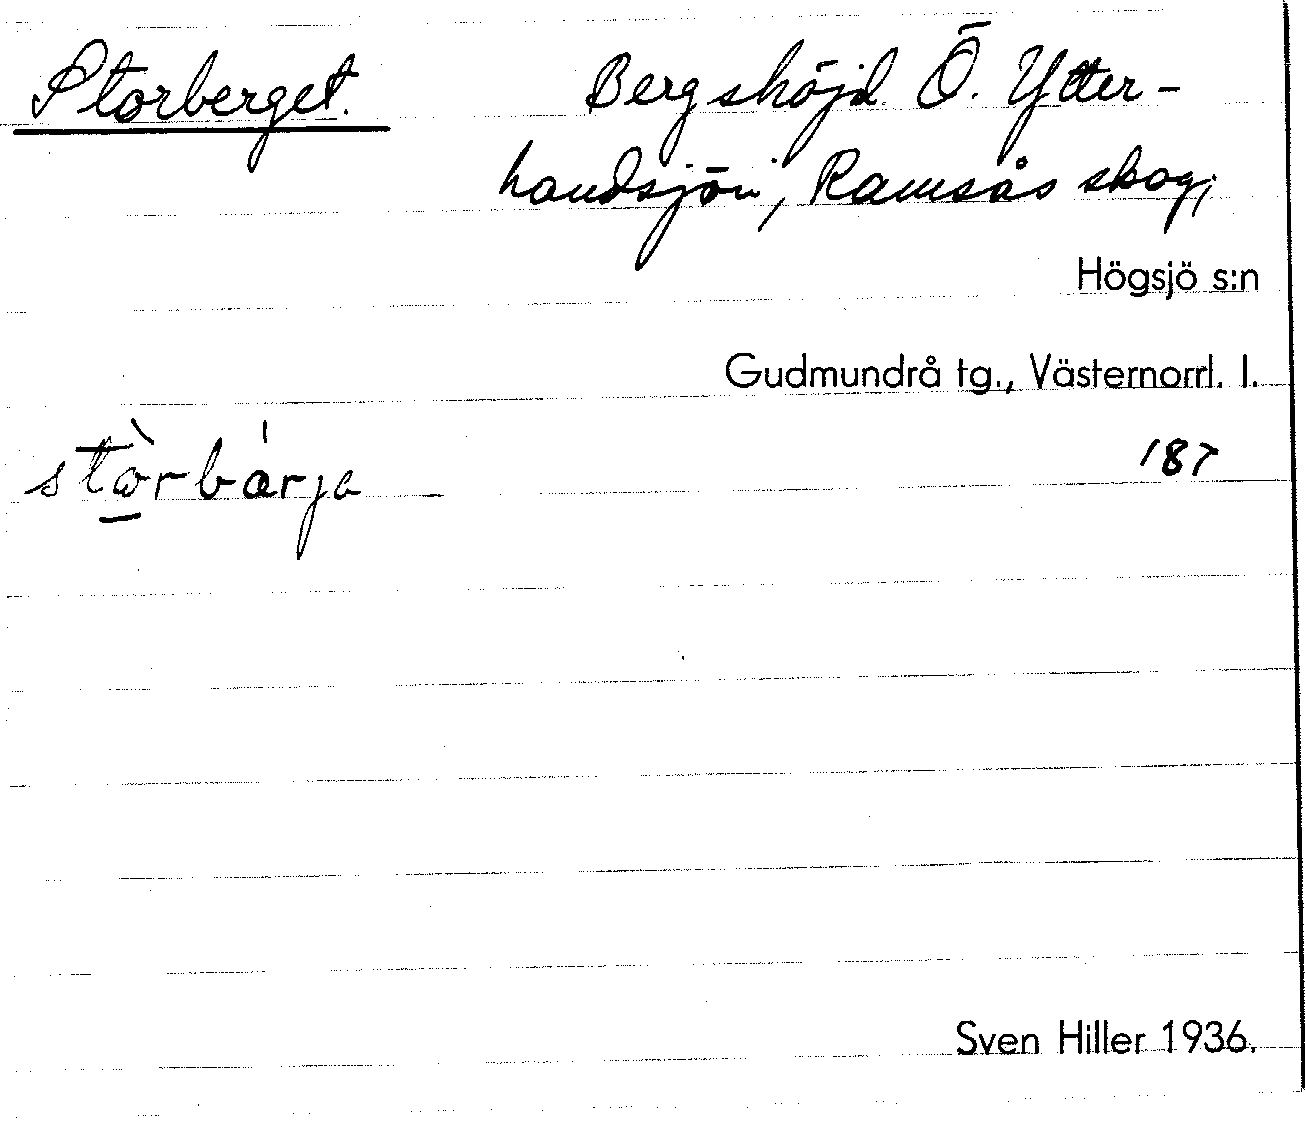 Storberget. Bergshöjd Ö. Ytter-
landsjön, Ramsås skog,
Högsjö s:n
Gudmundrå tg., Västernorrl. l.
stòrbárja 187
Sven Hiller 1936.